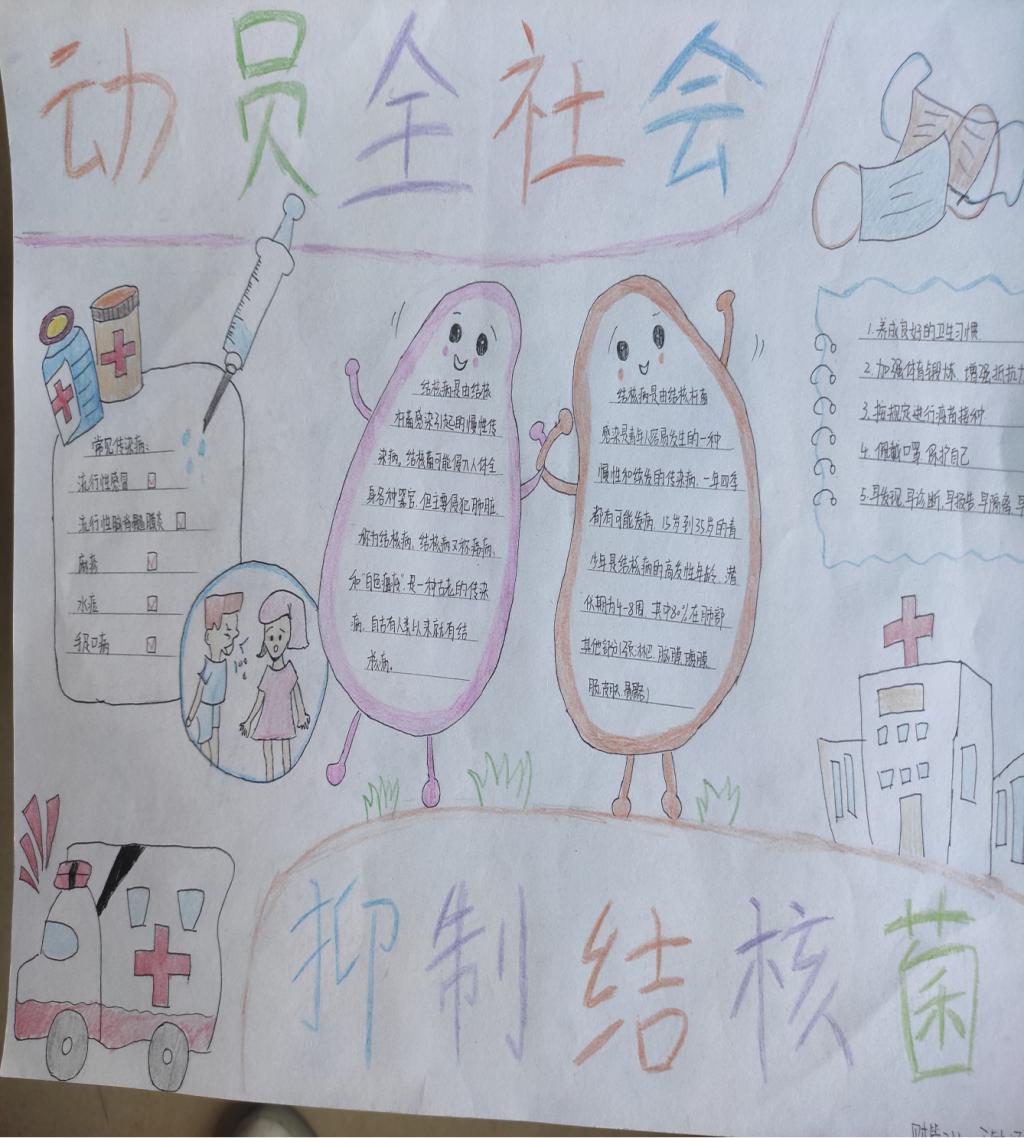 动员全社会
常见传染病:
流行性感冒
流行性脑脊髓膜炎
麻疹
水痘
手足口病
结核病是由结核
杆菌感染引起的慢性传
染病。结核菌可能侵入人体全
身各种器官,但主要侵犯肺脏
称为结核病,结核病又称痨病,
和"白色瘟疫",是一种古老的传染
病,自古有人类以来就有结
核病。
结核病由结核杆菌
感染是青年人容易发生的一种
慢性和缓发的传染病,一年四季
都有可能发病,15岁到35岁的青
少年是结核病的高发性年龄,潜
伏期为4-8周,其中80%在肺部
其他部分(颈淋巴、脑膜、腹膜
肠、皮肤、骨骼)
1.养成良好的卫生习惯.
2.加强体育锻炼,增强抵抗力
3.按规定进行疫苗接种
4.佩戴口罩,保护自己
5.早发现,早诊断,早报告,早隔离,早
抑制结核菌